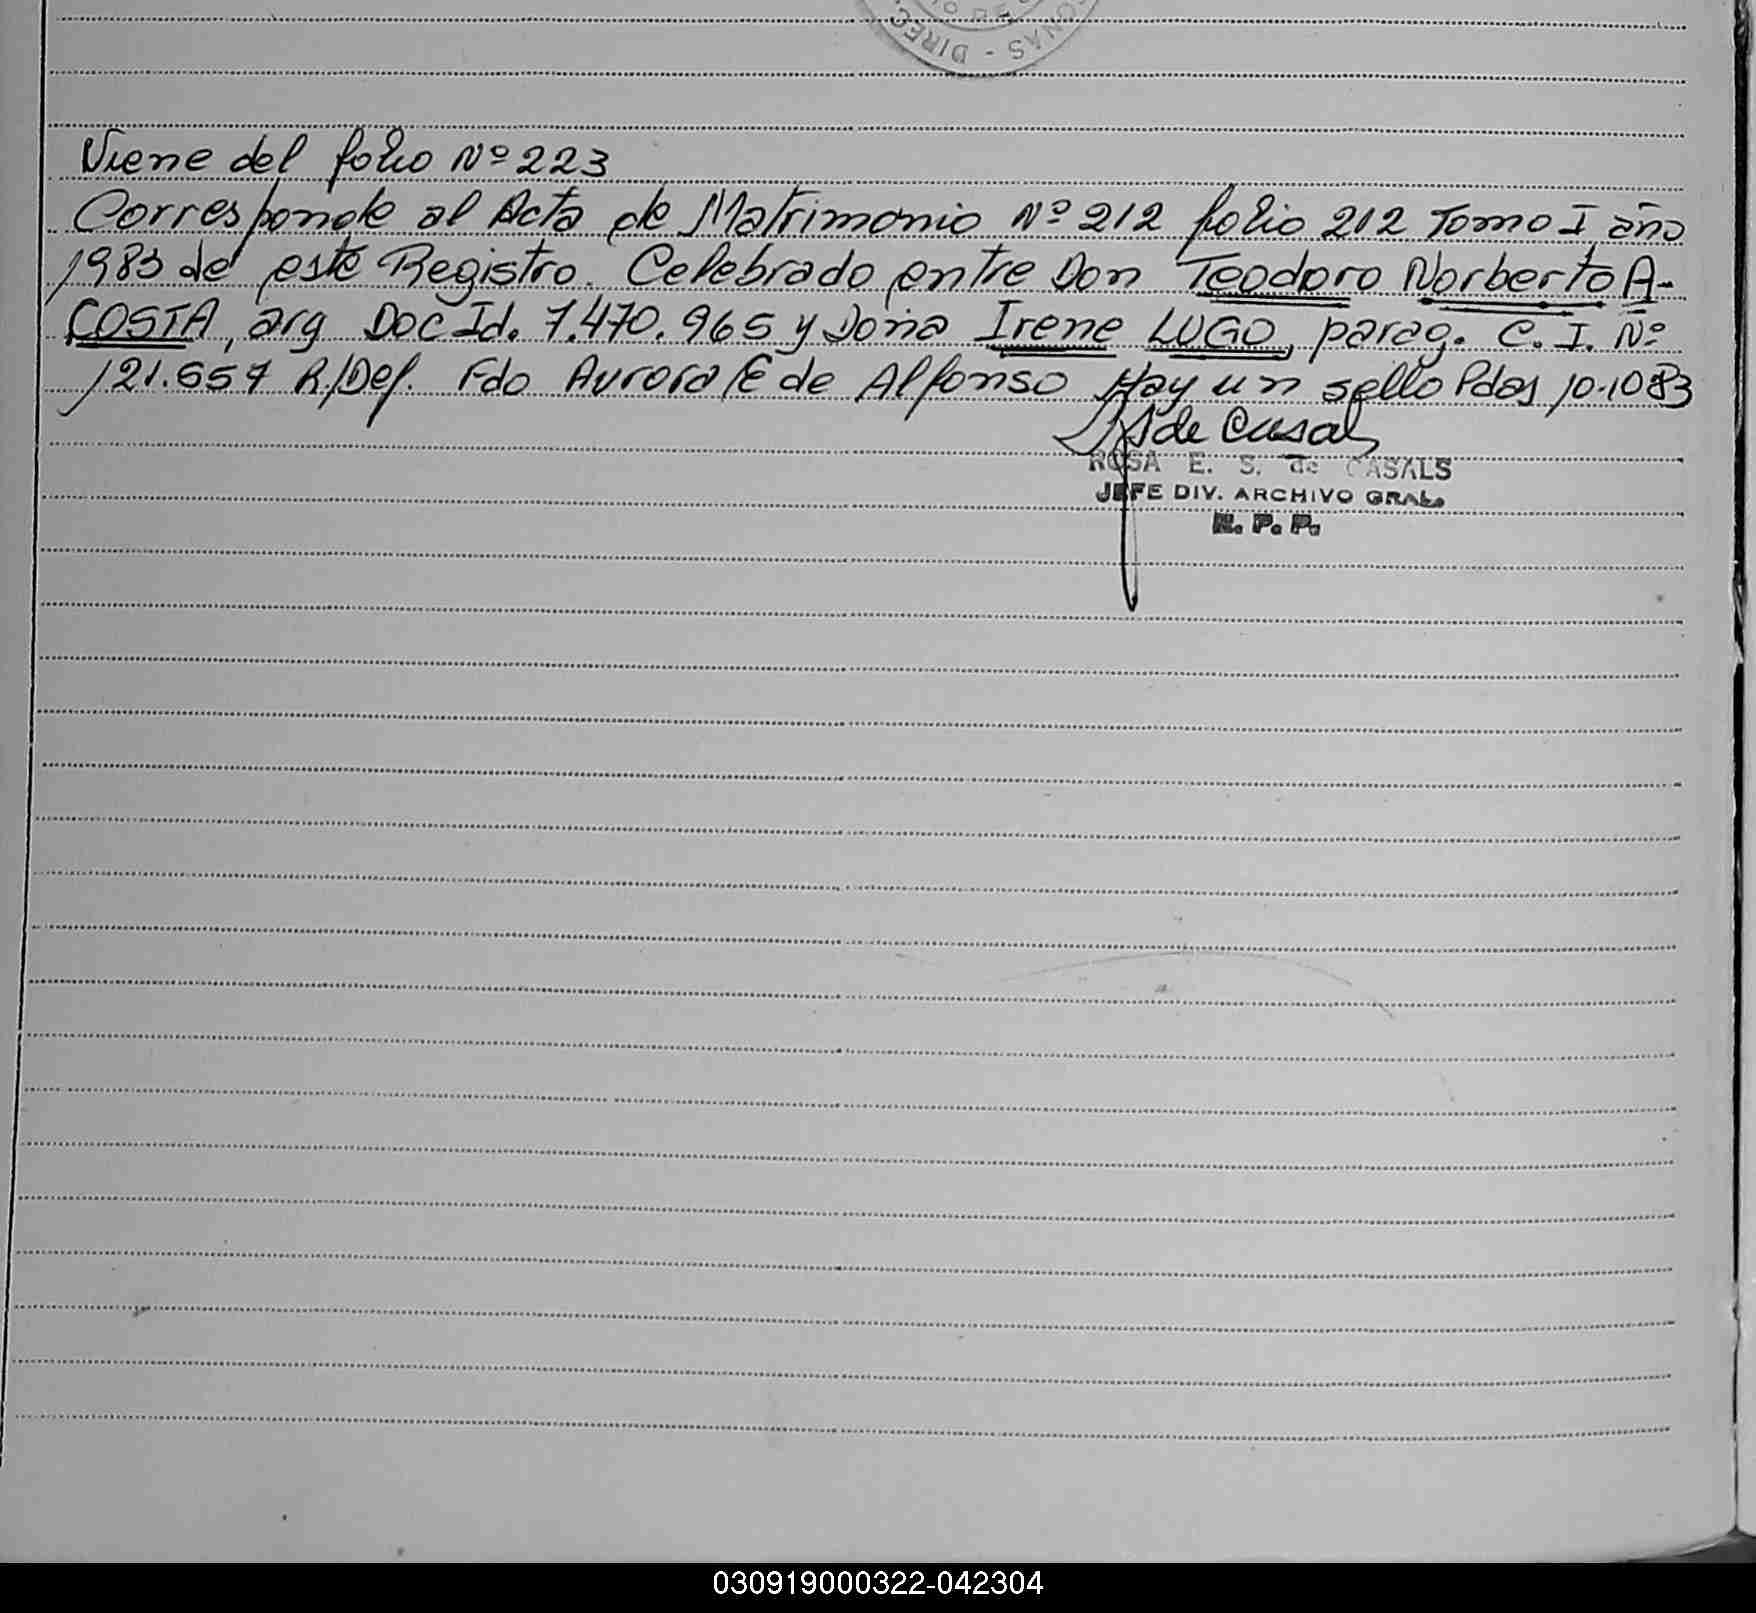 DIREC
ONAS -
Viene del folio Nº 223
Corresponde al Acta de Matrimonio Nº 212 folio 212 Tomo I año
1983 de este Registro. Celebrado entre Don Teodoro Norberto A-
COSTA, arg Doc Id. 7.470.965 y Doña Irene LUGO, parag. C.I. Nº
121.657 R/Def. Fdo Aurora E de Alfonso Hay un sello Pdas 10-10 83
de Casal
ROSA E. S. de CASALS
JEFE DIV. ARCHIVO GRAL.
R. P. P.
030919000322-042304